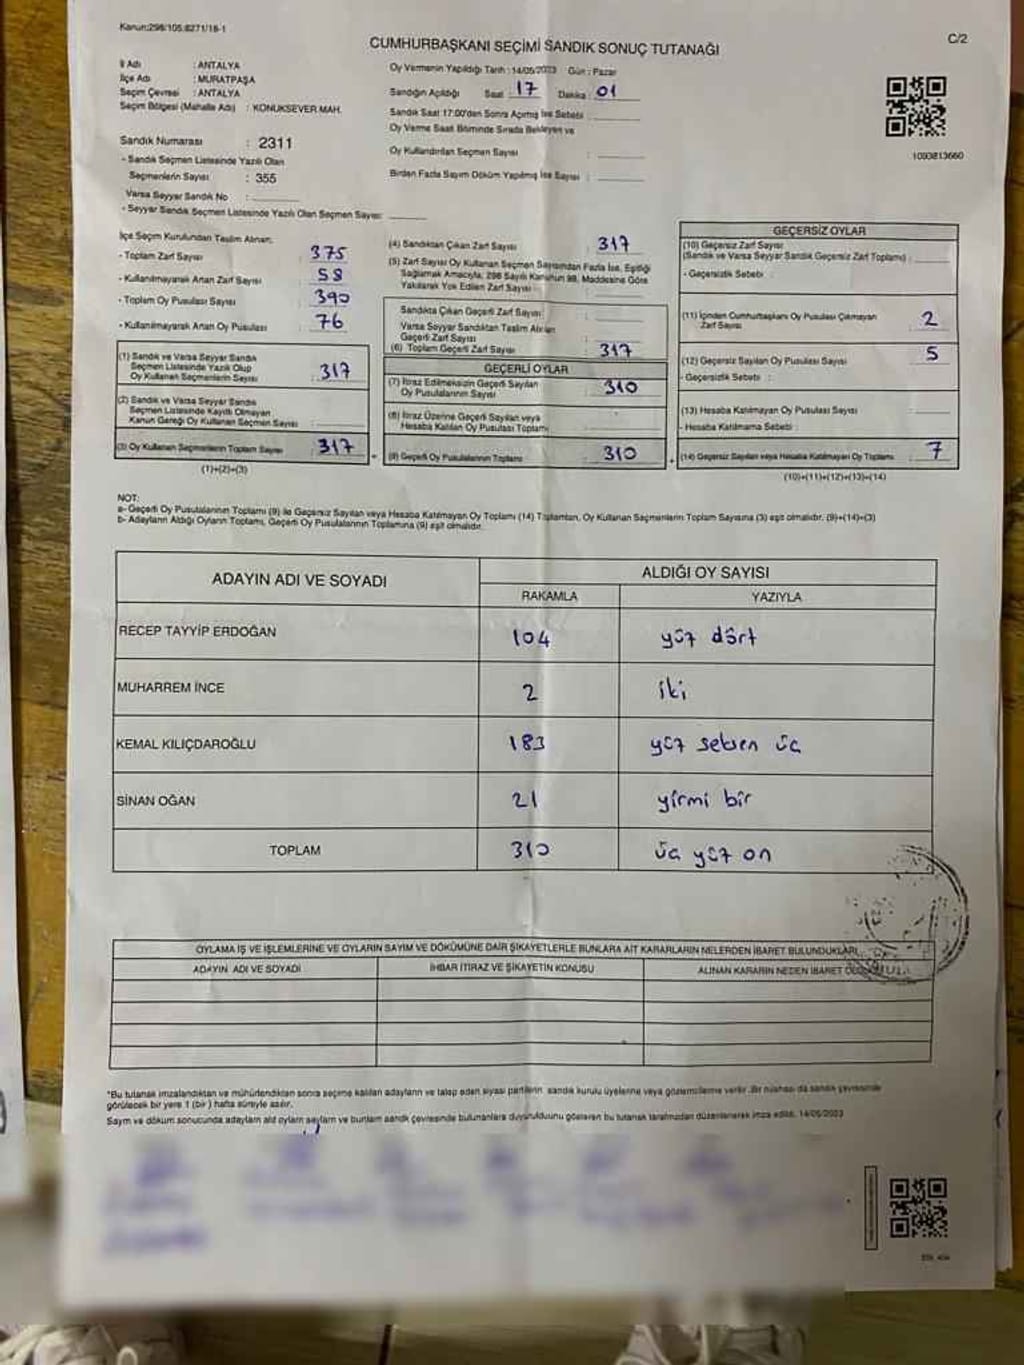 Kanun:298/105.6271/16-1
C/2
CUMHURBAŞKANI SEÇİMİ SANDIK SONUÇ TUTANAĞI
İl Adı : ANTALYA
İlçe Adı : MURATPAŞA
Seçim Çevresi : ANTALYA
Seçim Bölgesi (Mahalle Adı) : KONUKSEVER MAH.
Sandık Numarası : 2311
- Sandık Seçmen Listesinde Yazılı Olan
Seçmenlerin Sayısı : 355
Varsa Seyyar Sandık No :
- Seyyar Sandık Seçmen Listesinde Yazılı Olan Seçmen Sayısı:
Oy Vermenin Yapıldığı Tarih : 14/05/2023 Gün : Pazar
Sandığın Açıldığı Saat : 17 Dakika : 01
Sandık Saat 17:00'den Sonra Açılmış İse Sebebi :
Oy Verme Saati Bitiminde Sırada Bekleyen ve
Oy Kullandırılan Seçmen Sayısı :
Birden Fazla Sayım Döküm Yapılmış İse Sayısı :
1093813660
İlçe Seçim Kurulundan Teslim Alınan;
- Toplam Zarf Sayısı : 375
- Kullanılmayarak Artan Zarf Sayısı : 58
- Toplam Oy Pusulası Sayısı : 390
- Kullanılmayarak Artan Oy Pusulası : 76
(1) Sandık ve Varsa Seyyar Sandık
Seçmen Listesinde Yazılı Olup
Oy Kullanan Seçmenlerin Sayısı : 317
(2) Sandık ve Varsa Seyyar Sandık
Seçmen Listesinde Kayıtlı Olmayan
Kanun Gereği Oy Kullanan Seçmen Sayısı :
(3) Oy Kullanan Seçmenlerin Toplam Sayısı : 317
(1)+(2)=(3)
(4) Sandıktan Çıkan Zarf Sayısı : 317
(5) Zarf Sayısı Oy Kullanan Seçmen Sayısından Fazla İse, Eşitliği
Sağlamak Amacıyla, 298 Sayılı Kanunun 98. Maddesine Göre
Yakılarak Yok Edilen Zarf Sayısı :
Sandıkta Çıkan Geçerli Zarf Sayısı :
Varsa Seyyar Sandıktan Teslim Alınan
Geçerli Zarf Sayısı :
(6) Toplam Geçerli Zarf Sayısı : 317
GEÇERLİ OYLAR
(7) İtiraz Edilmeksizin Geçerli Sayılan
Oy Pusulalarının Sayısı : 310
(8) İtiraz Üzerine Geçerli Sayılan veya
Hesaba Katılan Oy Pusulası Toplamı :
(9) Geçerli Oy Pusulalarının Toplamı : 310
GEÇERSİZ OYLAR
(10) Geçersiz Zarf Sayısı
(Sandık ve Varsa Seyyar Sandık Geçersiz Zarf Toplamı) :
- Geçersizlik Sebebi :
(11) İçinden Cumhurbaşkanı Oy Pusulası Çıkmayan
Zarf Sayısı : 2
(12) Geçersiz Sayılan Oy Pusulası Sayısı : 5
- Geçersizlik Sebebi :
(13) Hesaba Katılmayan Oy Pusulası Sayısı :
- Hesaba Katılmama Sebebi :
(14) Geçersiz Sayılan veya Hesaba Katılmayan Oy Toplamı : 7
(10)+(11)+(12)+(13)=(14)
NOT:
a- Geçerli Oy Pusulalarının Toplamı (9) ile Geçersiz Sayılan veya Hesaba Katılmayan Oy Toplamı (14) Toplamları, Oy Kullanan Seçmenlerin Toplam Sayısına (3) eşit olmalıdır. (9)+(14)=(3)
b- Adayların Aldığı Oyların Toplamı, Geçerli Oy Pusulalarının Toplamına (9) eşit olmalıdır.
ADAYIN ADI VE SOYADI ALDIĞI OY SAYISI
RAKAMLA YAZIYLA
RECEP TAYYİP ERDOĞAN 104 yüz dört
MUHARREM İNCE 2 iki
KEMAL KILIÇDAROĞLU 183 yüz seksen üç
SİNAN OĞAN 21 yirmi bir
TOPLAM 310 üç yüz on
OYLAMA İŞ VE İŞLEMLERİNE VE OYLARIN SAYIM VE DÖKÜMÜNE DAİR ŞİKAYETLERLE BUNLARA AİT KARARLARIN NELERDEN İBARET BULUNDUKLARI
ADAYIN ADI VE SOYADI İHBAR İTİRAZ VE ŞİKAYETİN KONUSU ALINAN KARARIN NEDEN İBARET
*Bu tutanak imzalandıktan ve mühürlendikten sonra seçime katılan adayların ve talep eden siyasi partilerin sandık kurulu üyelerine veya gözlemcilerine verilir. Bir nüshası da sandık çevresinde
görülecek bir yere 1 (bir) hafta süreyle asılır.
Sayım ve döküm sonucunda adayların aldığı oyların sayıları ve bunların sandık çevresinde bulunanlara duyurulduğunu gösteren bu tutanak tarafımızdan düzenlenerek imza edildi. 14/05/2023